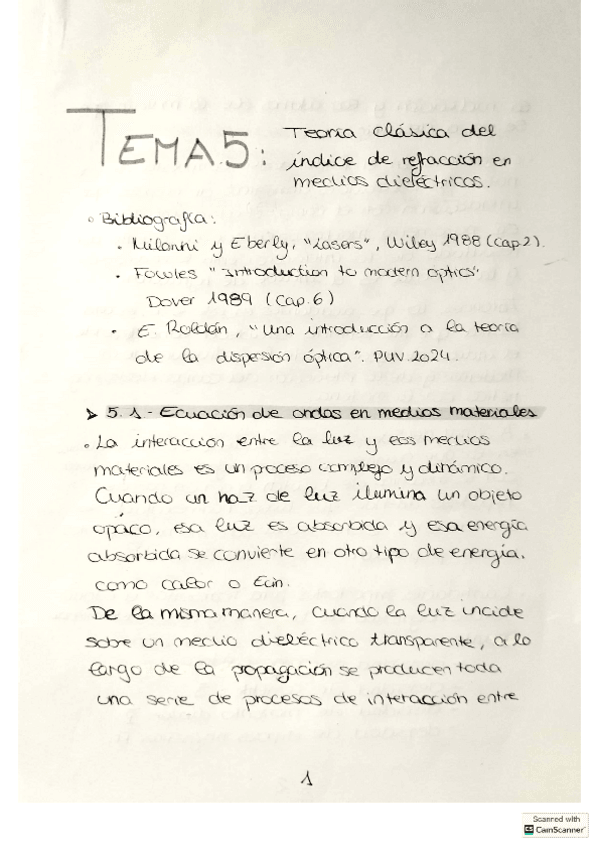 TEMA 5: Teoría clásica del
índice de refracción en
medios dieléctricos.
• Bibliografía:
• Milonni y Eberly, "Lasers", Wiley 1988 (Cap 2).
• Fowles "Introduction to modern optics"
Dover 1989 (Cap. 6)
• E. Roldán, "Una introducción a la teoría
de la dispersión óptica". PUV. 2024.
➤ 5.1.- Ecuación de ondas en medios materiales
• La interacción entre la luz y los medios
materiales es un proceso complejo y dinámico.
Cuando un haz de luz ilumina un objeto
opaco, esa luz es absorbida y esa energía
absorbida se convierte en otro tipo de energía,
como calor o Ecin.
De la misma manera, cuando la luz incide
sobre un medio dieléctrico transparente, a lo
largo de la propagación se producen toda
una serie de procesos de interacción entre
1
Scanned with
CamScanner